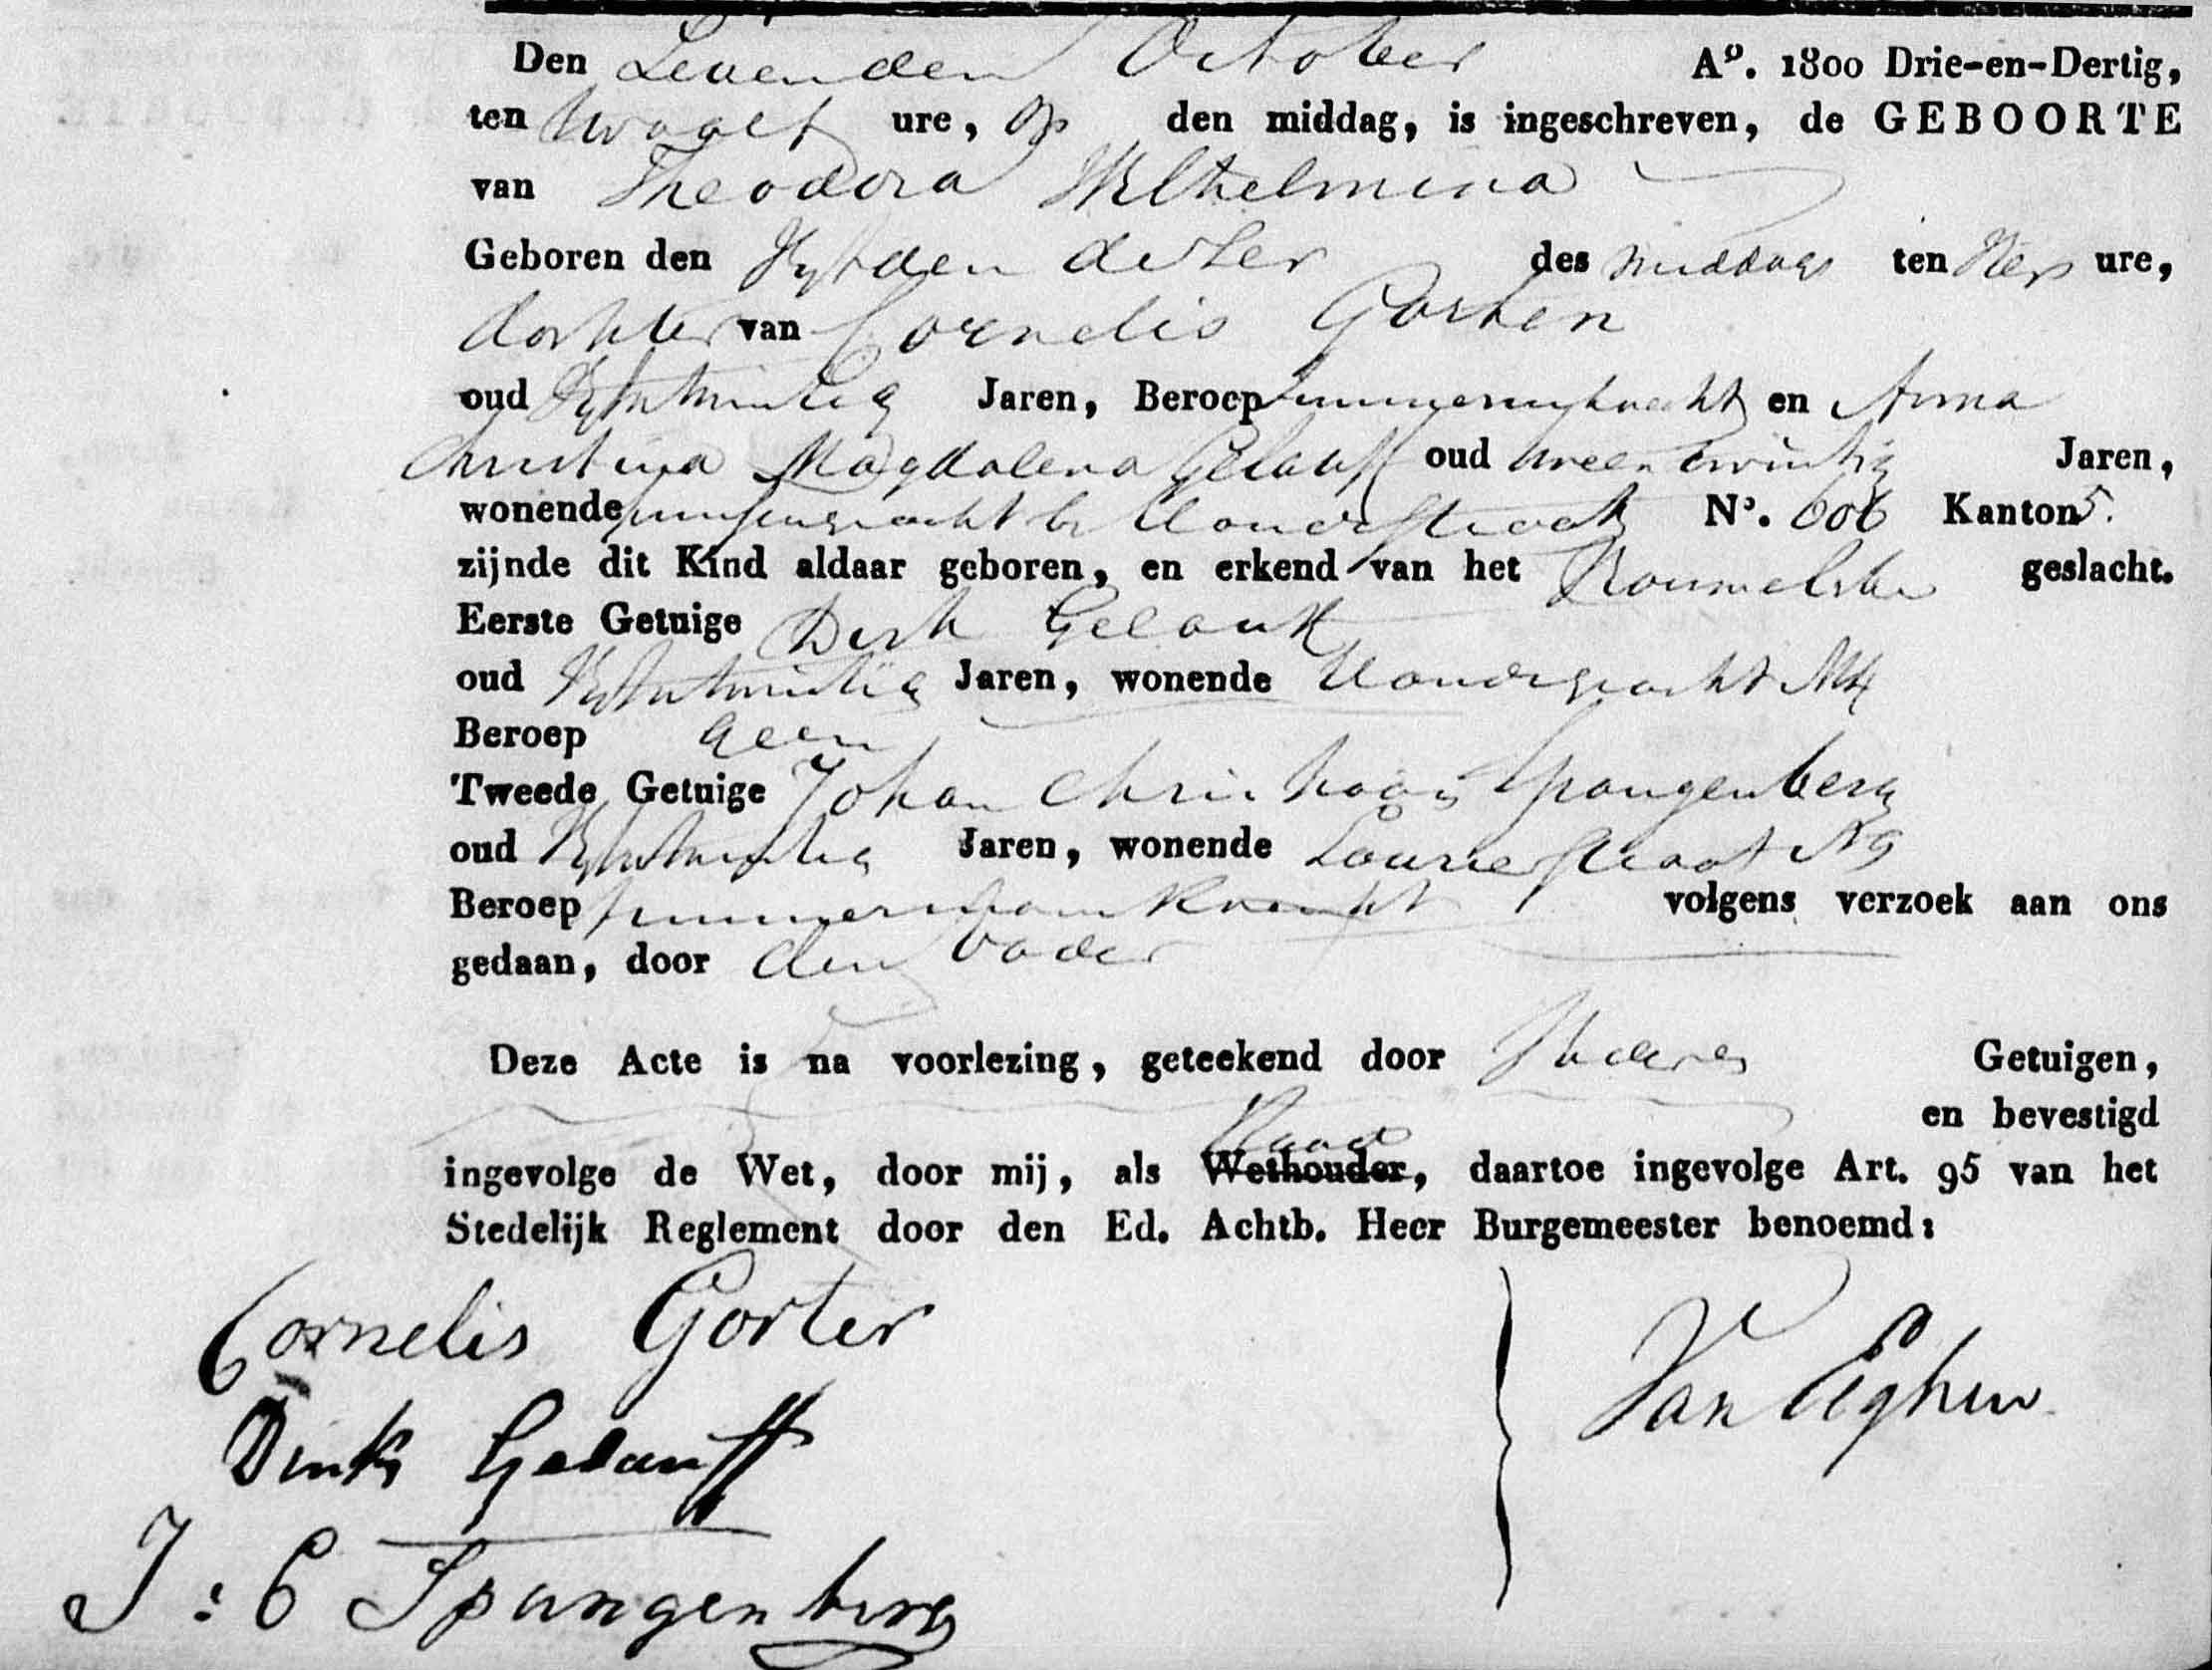 Den Zevenden October Aº. 1800 Drie-en-Dertig,
ten twaalf ure, op den middag, is ingeschreven, de GEBOORTE
van Theodora Wilhelmina
Geboren den Vyfden dezer des middags ten ure,
dochter van Cornelis Gorter
oud Jaren, Beroep en Anna
Christina Magdalena Gelauff oud tweentwintig Jaren,
wonende straat Nº. 606 Kanton 5.
zijnde dit Kind aldaar geboren, en erkend van het geslacht.
Eerste Getuige Dirk Gelauff
oud Jaren, wonende
Beroep geen
Tweede Getuige Johan Spangenberg
oud Jaren, wonende Laurierstraat
Beroep volgens verzoek aan ons
gedaan, door den Vader
Deze Acte is na voorlezing, geteekend door Getuigen,
en bevestigd
Raad
ingevolge de Wet, door mij, als Wethouder, daartoe ingevolge Art. 95 van het
Stedelijk Reglement door den Ed. Achtb. Heer Burgemeester benoemd:
Cornelis Gorter
Van Eeghen
Dirk Gelauff
J: C Spangenberg